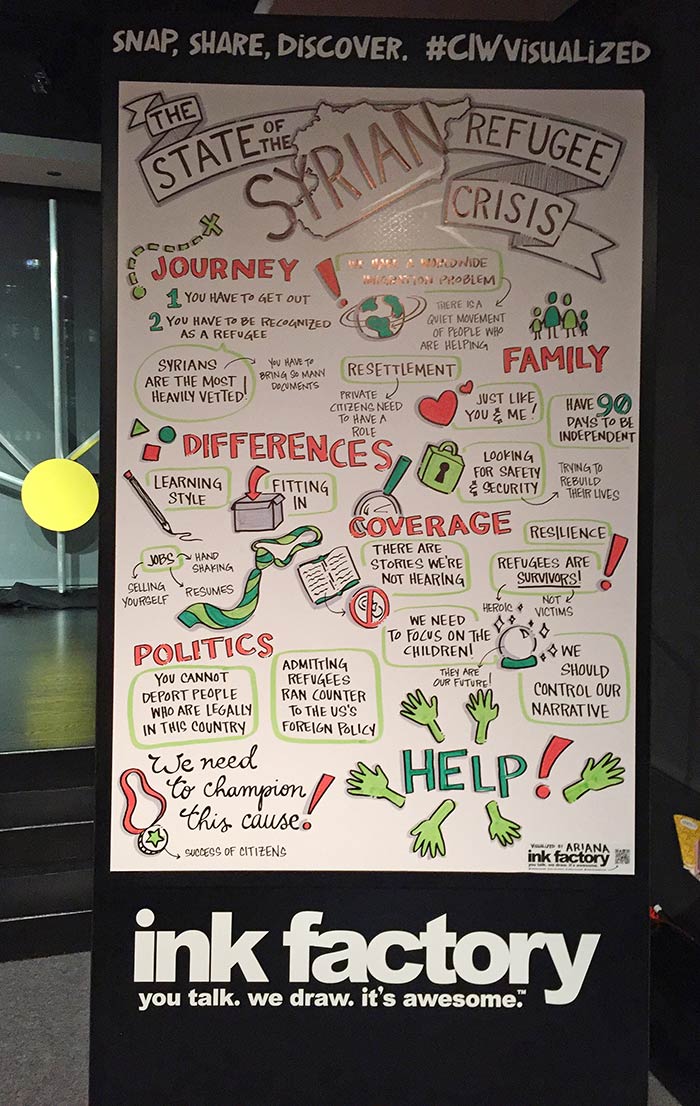 SNAP, SHARE, DISCOVER. #CIWVISUALIZED
THE
STATE OF THE
SYRIAN
REFUGEE
CRISIS
JOURNEY
1 YOU HAVE TO GET OUT
2 YOU HAVE TO BE RECOGNIZED
AS A REFUGEE
SYRIANS
ARE THE MOST
HEAVILY VETTED!
YOU HAVE TO
BRING SO MANY
DOCUMENTS
! WE HAVE A WORLDWIDE
IMMIGRATION PROBLEM
THERE IS A
QUIET MOVEMENT
OF PEOPLE WHO
ARE HELPING
RESETTLEMENT
PRIVATE
CITIZENS NEED
TO HAVE A
ROLE
FAMILY
JUST LIKE
YOU & ME!
HAVE 90
DAYS TO BE
INDEPENDENT
LOOKING
FOR SAFETY
& SECURITY
TRYING TO
REBUILD
THEIR LIVES
DIFFERENCES
LEARNING
STYLE
FITTING
IN
JOBS
HAND
SHAKING
SELLING
YOURSELF
RESUMES
COVERAGE
THERE ARE
STORIES WE'RE
NOT HEARING
RESILIENCE
REFUGEES ARE
SURVIVORS!
HEROIC
NOT
VICTIMS
WE NEED
TO FOCUS ON THE
CHILDREN!
THEY ARE
OUR FUTURE!
WE
SHOULD
CONTROL OUR
NARRATIVE
POLITICS
YOU CANNOT
DEPORT PEOPLE
WHO ARE LEGALLY
IN THIS COUNTRY
ADMITTING
REFUGEES
RAN COUNTER
TO THE US'S
FOREIGN POLICY
We need
to champion
this cause!
SUCCESS OF CITIZENS
HELP!
VISUALIZED BY ARIANA
ink factory
you talk. we draw. it's awesome.
ink factory
you talk. we draw. it's awesome.™